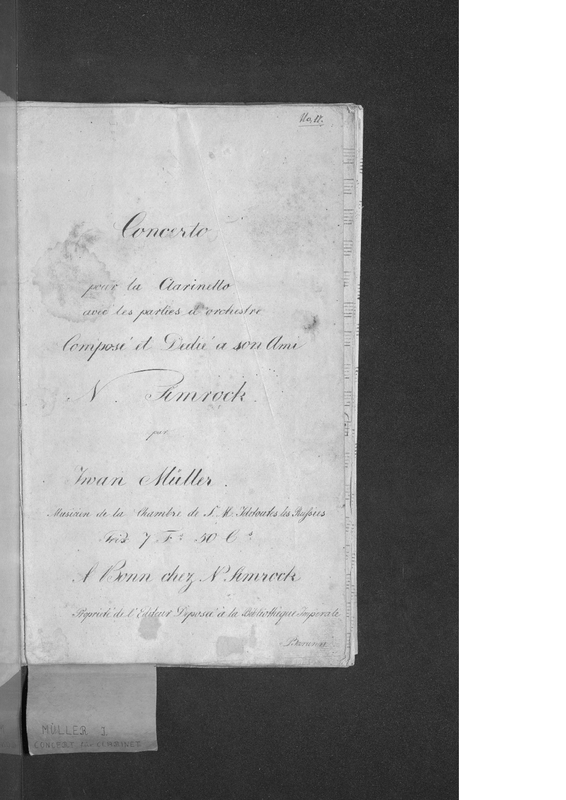 No. 17.
Concerto
pour la Clarinetto
avec les parties d'orchestre
Composé et Dedié a son Ami
N. Simrock.
par
Iwan Müller.
Musicien de la Chambre de S. M. I. de toutes les Russies
Prix 7 Fs 50 Cs
A Bonn chez N. Simrock
Propriété de l'Editeur Deposée à la Bibliothèque Imperiale
MÜLLER J
CONCERT